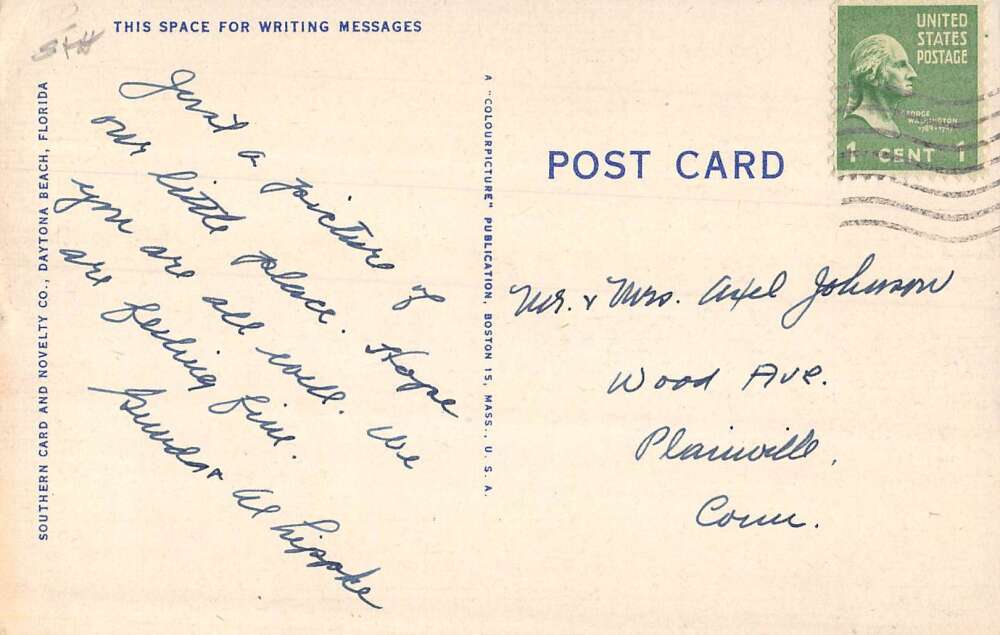 THIS SPACE FOR WRITING MESSAGES
Just a picture of
our little place. Hope
you are all well. We
are feeling fine.
& Al Lippke
SOUTHERN CARD AND NOVELTY CO., DAYTONA BEACH, FLORIDA
A "COLOURPICTURE" PUBLICATION, BOSTON 15, MASS., U. S. A.
POST CARD
UNITED
STATES
POSTAGE
GEORGE
WASHINGTON
1 CENT 1
Mr. & Mrs. Axel Johnson
Wood Ave.
Plainville,
Conn.